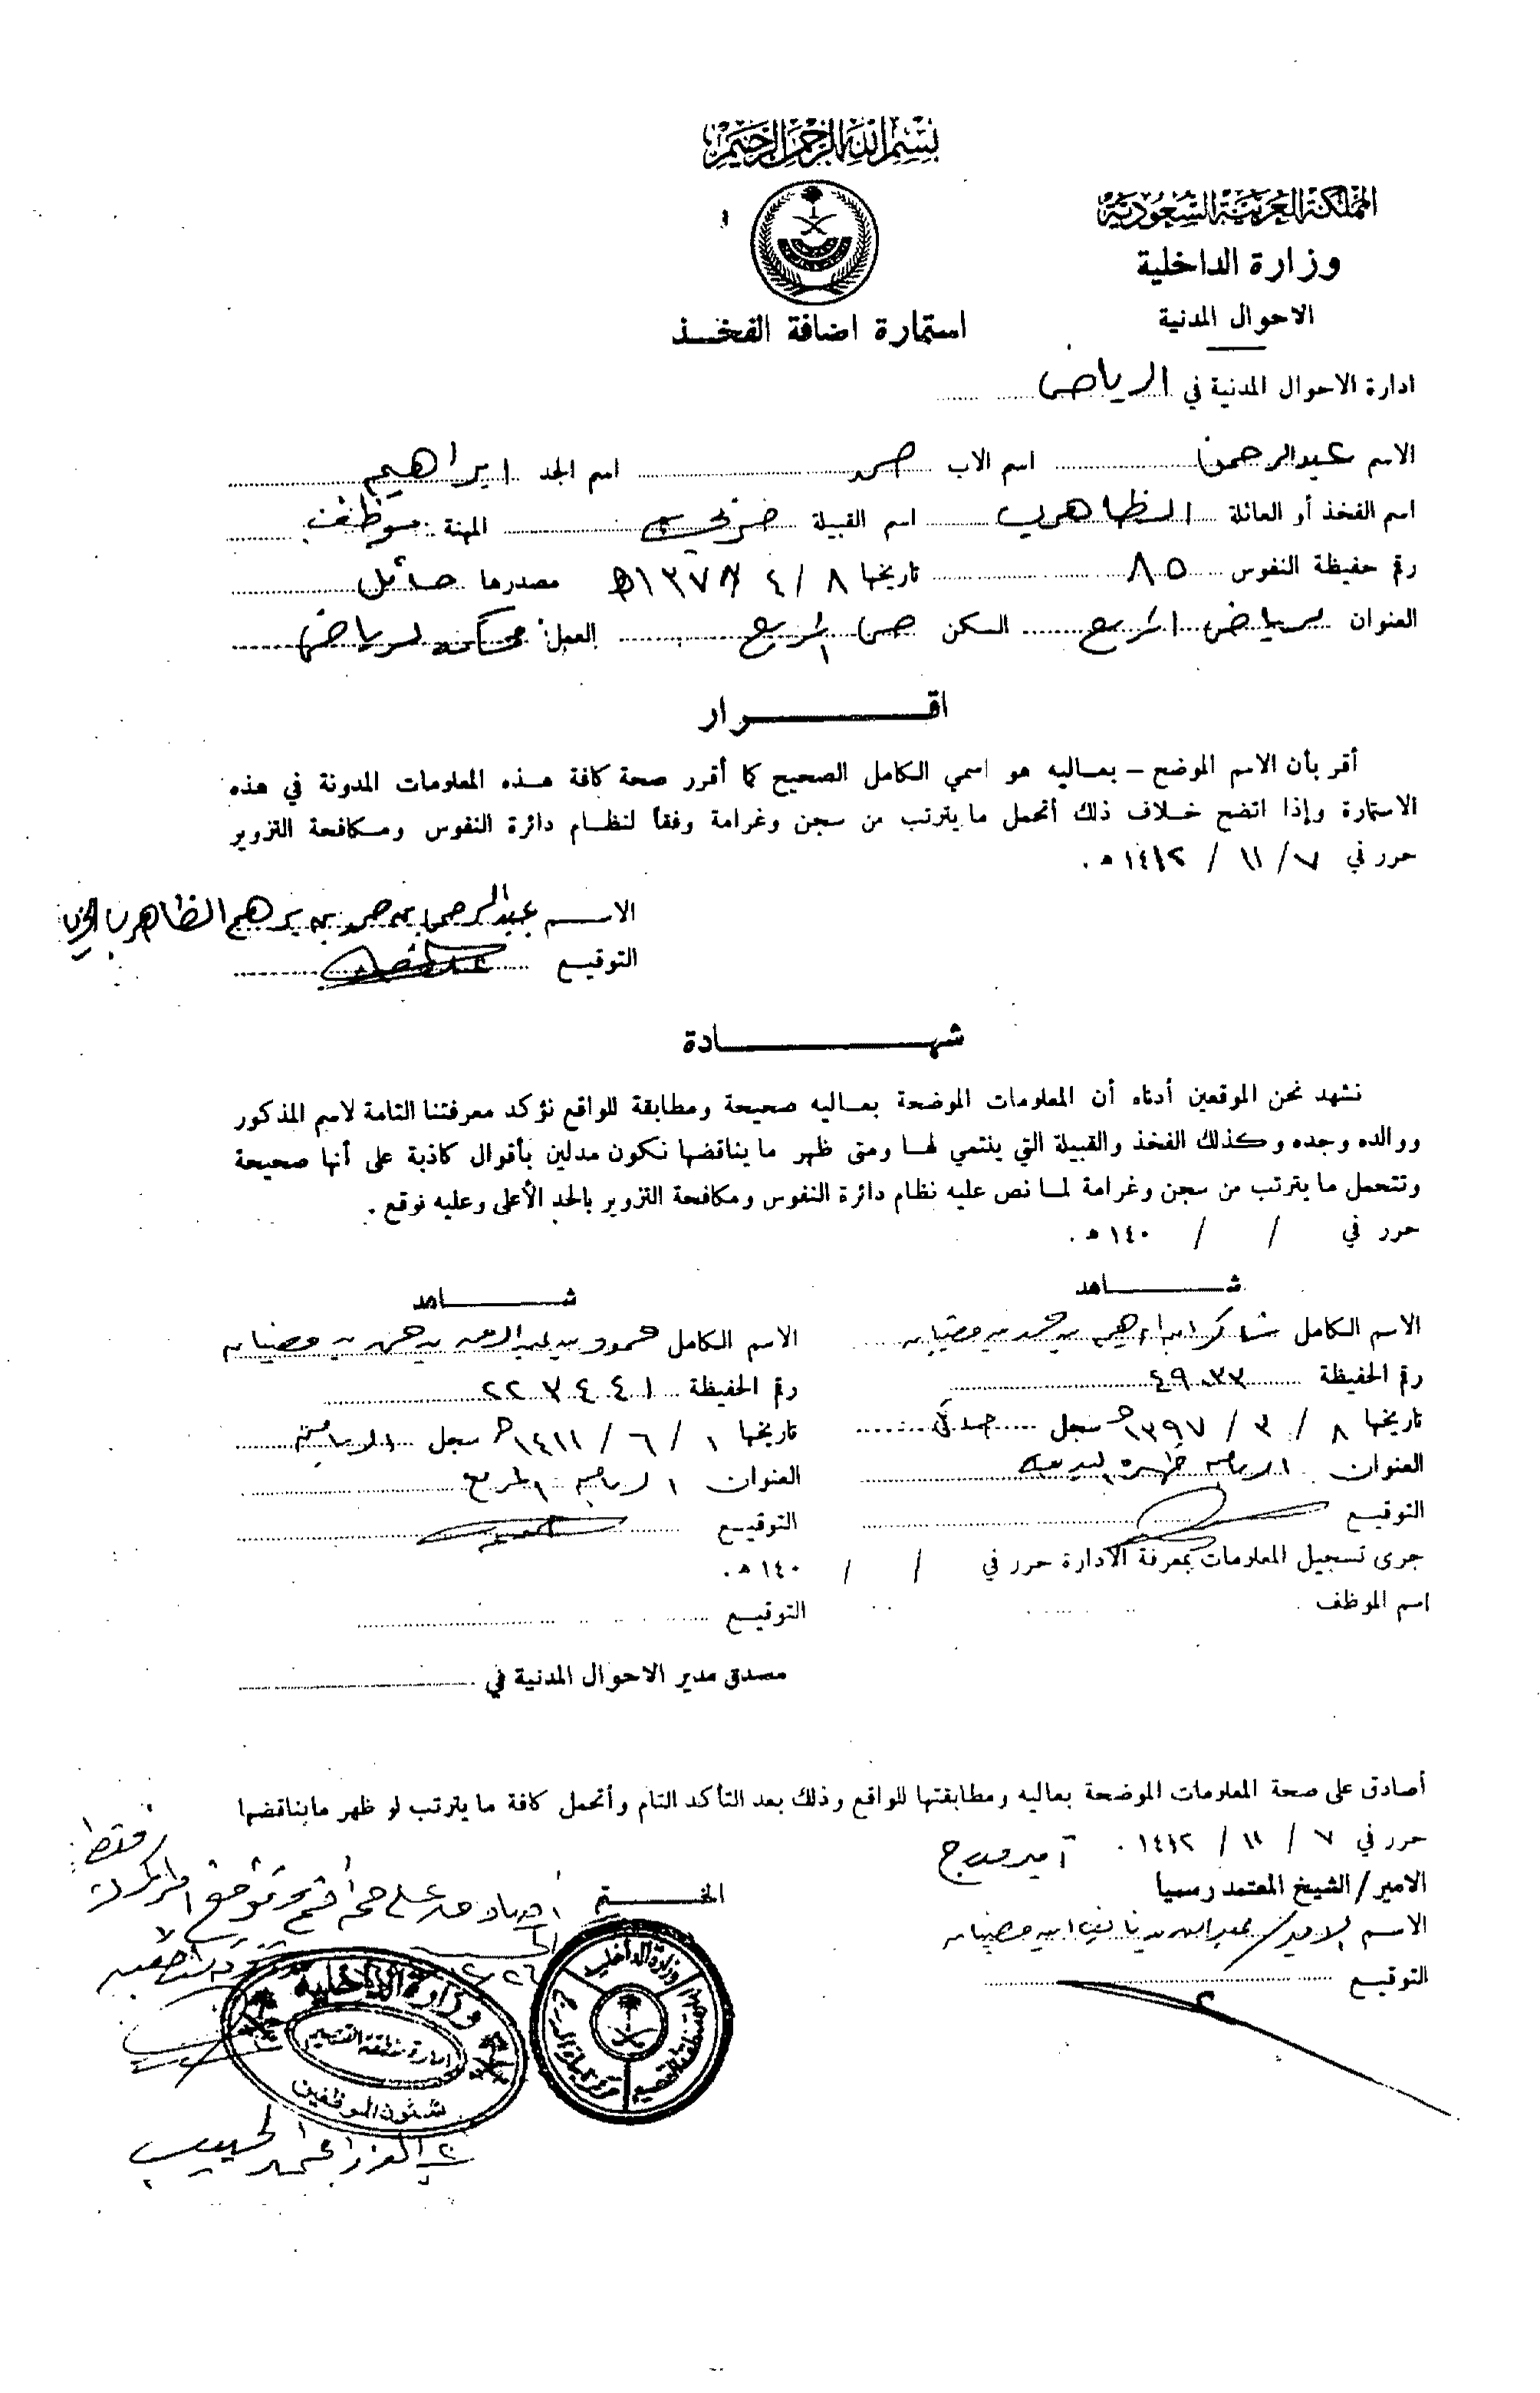 بسم الله الرحمن الرحيم
المملكة العربية السعودية
وزارة الداخلية
الاحوال المدنية
استمارة اضافة الفخـــذ
ادارة الاحوال المدنية في الرياض
الاسم عبدالرحمن اسم الاب حمد اسم الجد ابراهيم
اسم الفخذ أو العائلة الظاهري اسم القبيلة حربي المهنة موظف
رقم حفيظة النفوس ٨٥ تاريخها ٨ / ٤ / ١٣٧٨هـ مصدرها حائل
العنوان الرياض المربع السكن حي المربع العمل: محكمة الرياض
اقـــــــــرار
أقر بأن الاسم الموضح – بعـاليه هو اسمي الكامل الصحيح كما أقرر صحة كافة هـذه المعلومات المدونة في هذه
الاستمارة وإذا اتضح خـلاف ذلك أتحمل ما يترتب من سجن وغرامة وفقاً لنظـام دائرة النفوس ومـكافحة التزوير
حرر في ٧ / ١١ / ١٤١٢ هـ .
الاســـم عبدالرحمن بن حمد بن ابراهيم الظاهري الحربي
التوقيـع
شهـــــــــادة
نشهد نحن الموقعين أدناه أن المعلومات الموضحة بعـاليه صحيحة ومطابقة للواقع نؤكد معرفتنا التامة لاسم المذكور
ووالده وجده وكذلك الفخذ والقبيلة التي ينتمي لهـا ومتى ظهر ما يناقضها نكون مدلين بأقوال كاذبة على أنها صحيحة
ونتحمل ما يترتب من سجن وغرامة لمـا نص عليه نظام دائرة النفوس ومكافحة التزوير بالحد الأعلى وعليه نوقع .
حرر في / / ١٤٠ هـ .
شـــــــاهد
الاسم الكامل شاكر ابراهيم بن محمد بن مضيان
رقم الحفيظة ٤٩٠٣٣
تاريخها ٨ / ٣ / ١٣٩٧هـ سجل
العنوان الرياض ظهرة البديعة
التوقيـع
شـــــــاهد
الاسم الكامل حمود بن عبدالرحمن بن مضيان
رقم الحفيظة ٢٢٧٤٤١
تاريخها ١ / ٦ / ١٤١١هـ سجل الرياض
العنوان الرياض المربع
التوقيـع
جرى تسجيل المعلومات بمعرفة الادارة حرر في / / ١٤٠ هـ .
اسم الموظف التوقيـع
مصدق مدير الاحوال المدنية في
أصادق على صحة المعلومات الموضحة بعاليه ومطابقتها للواقع وذلك بعد التأكد التام وأتحمل كافة ما يترتب لو ظهر مايناقضها
حرر في ٧ / ١١ / ١٤١٢ .
الامير/الشيخ المعتمد رسميا
الاسم الامير/ عبدالله بن نايف ابن مضيان
التوقيـع
الختـــــم
أصادق على صحة ختم وتوقيع
فقط
وزارة الداخلية
امارة منطقة القصيم
شئون الموظفين
وزارة الداخلية